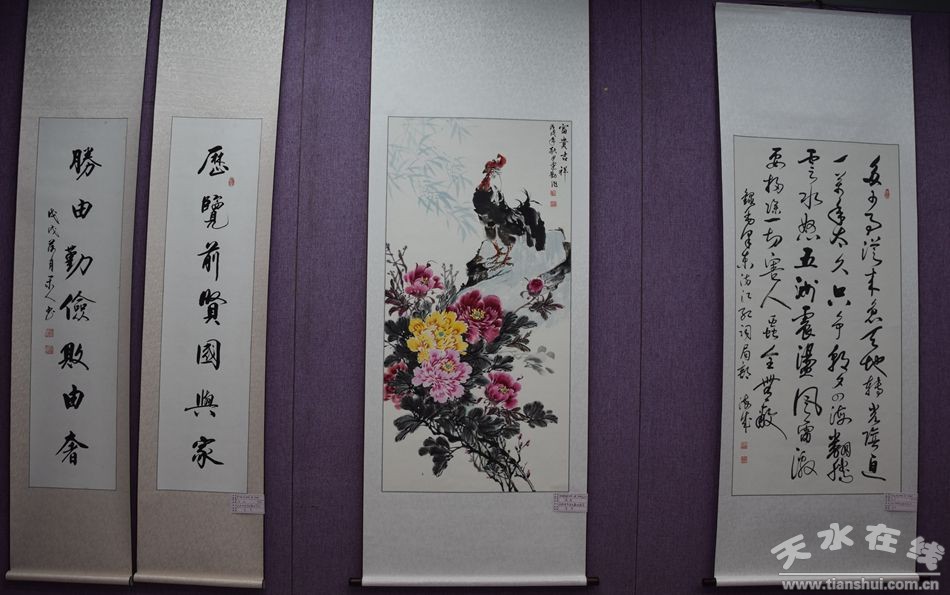 多少事從来急天地轉光陰迫
一萬年太久只争朝夕四海翻騰
雲水怒五洲震盪風雷激
要掃除一切害人蟲全無敵
錄毛澤東滿江紅詞局部
富貴吉祥
戊戌年秋
歷覽前賢國與家
勝由勤儉敗由奢
天水在线
www.tianshui.com.cn